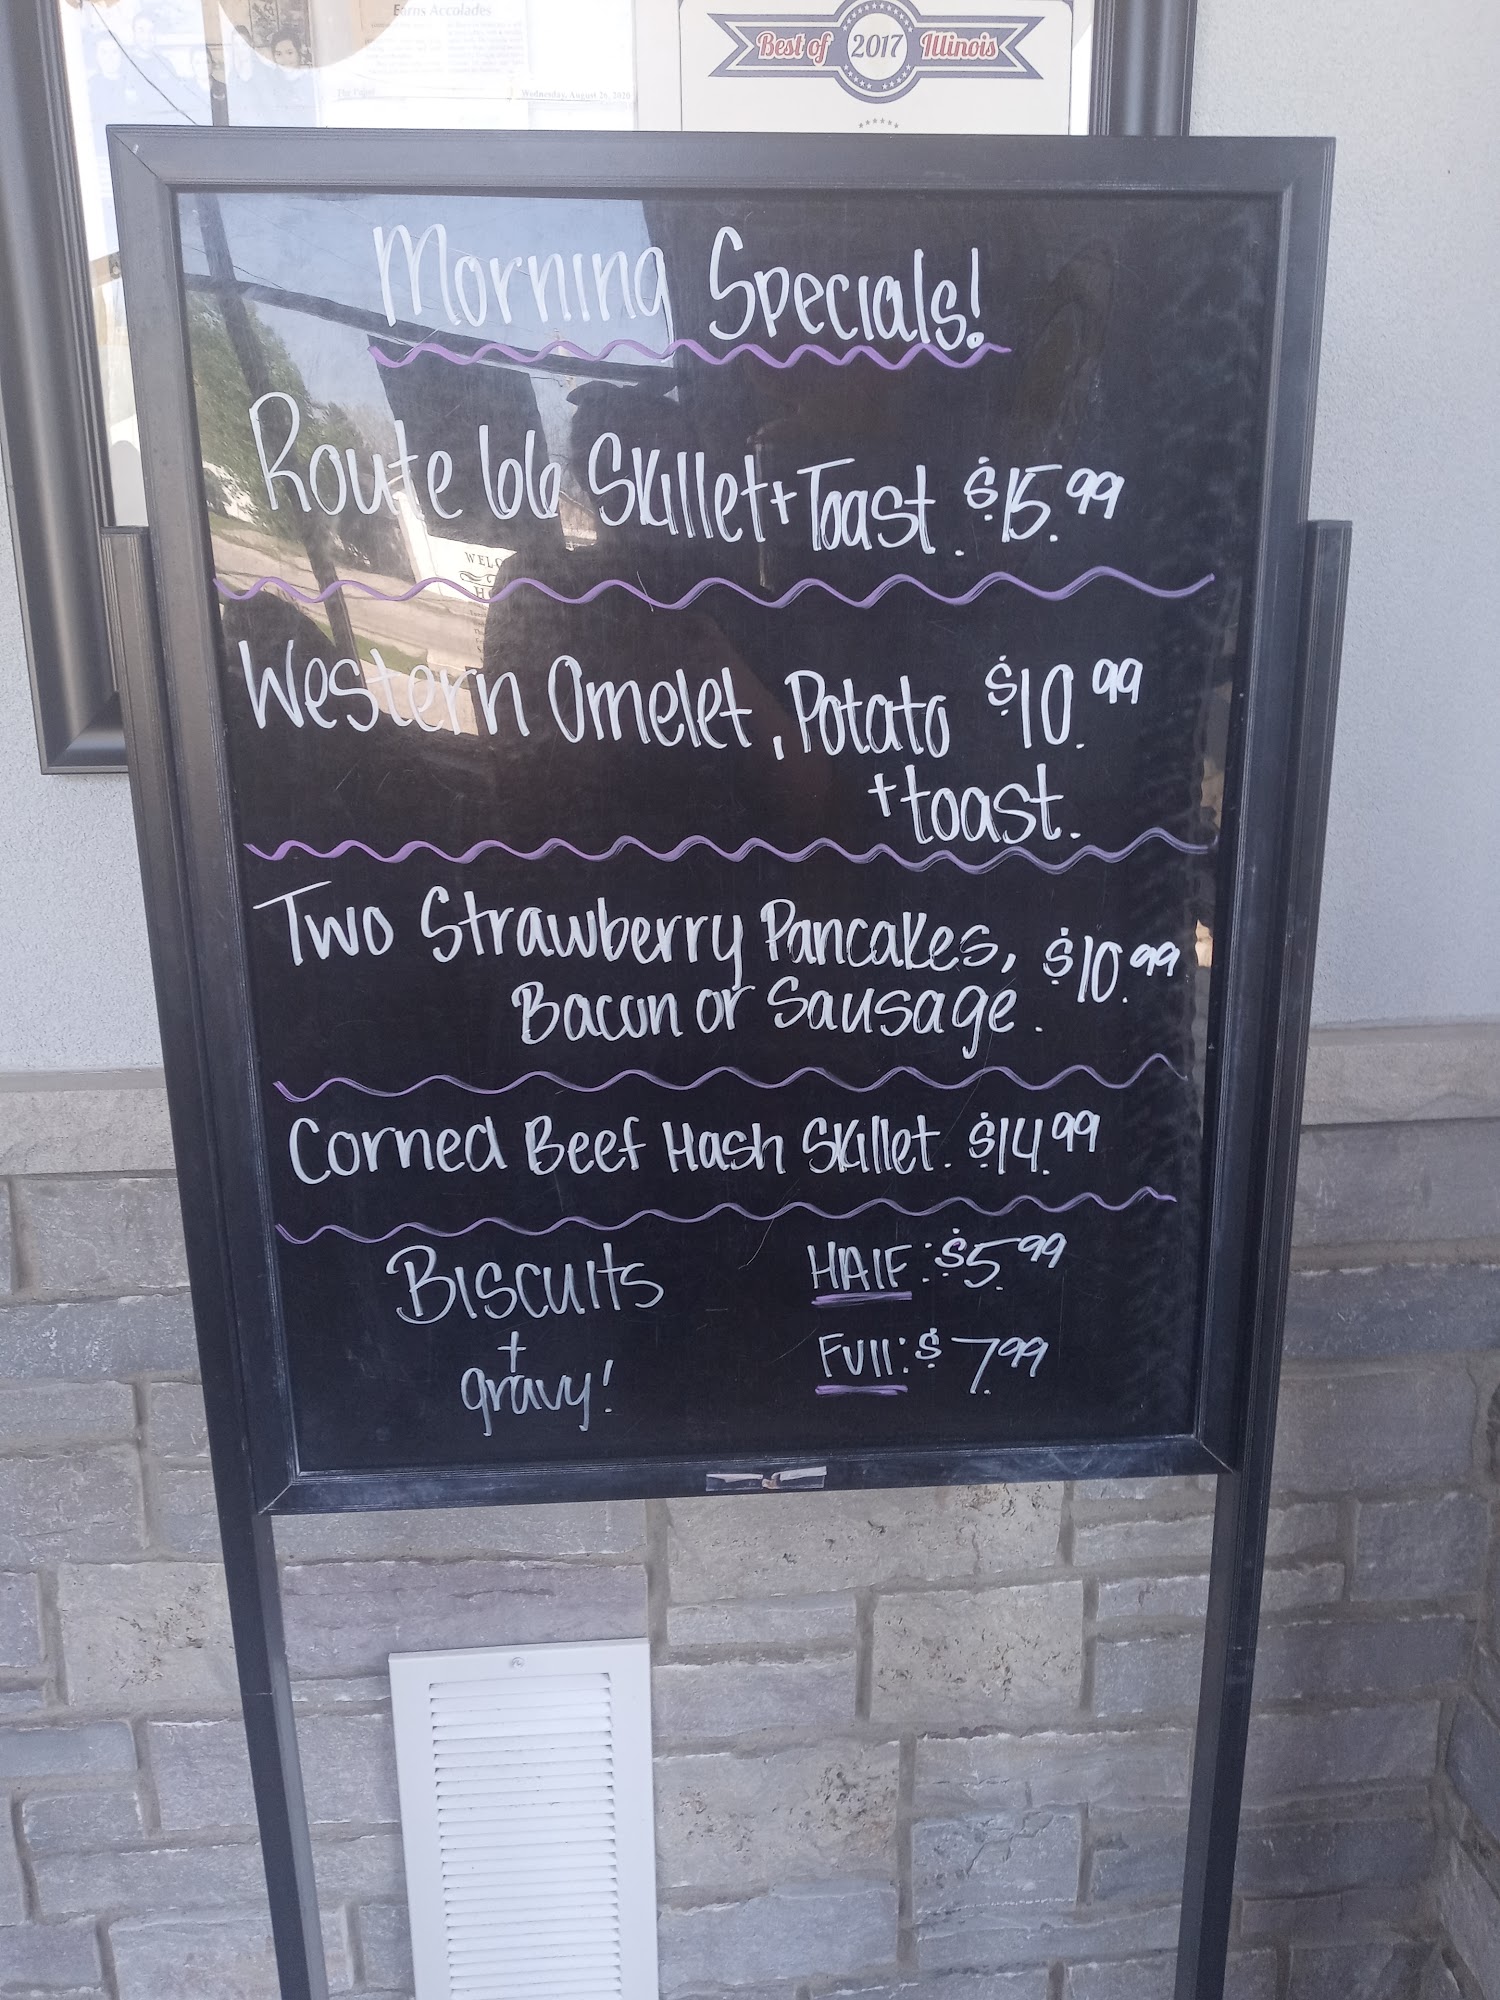 Earns Accolades
Wednesday, August 26, 2020
Best of 2017 Illinois
Morning Specials!
Route 66 Skillet + Toast. $15.99
WELC
Western Omelet, Potato $10.99
+ toast.
Two Strawberry Pancakes, $10.99
Bacon or Sausage.
Corned Beef Hash Skillet. $14.99
Biscuits HAlF: $5.99
+
gravy! Full: $7.99